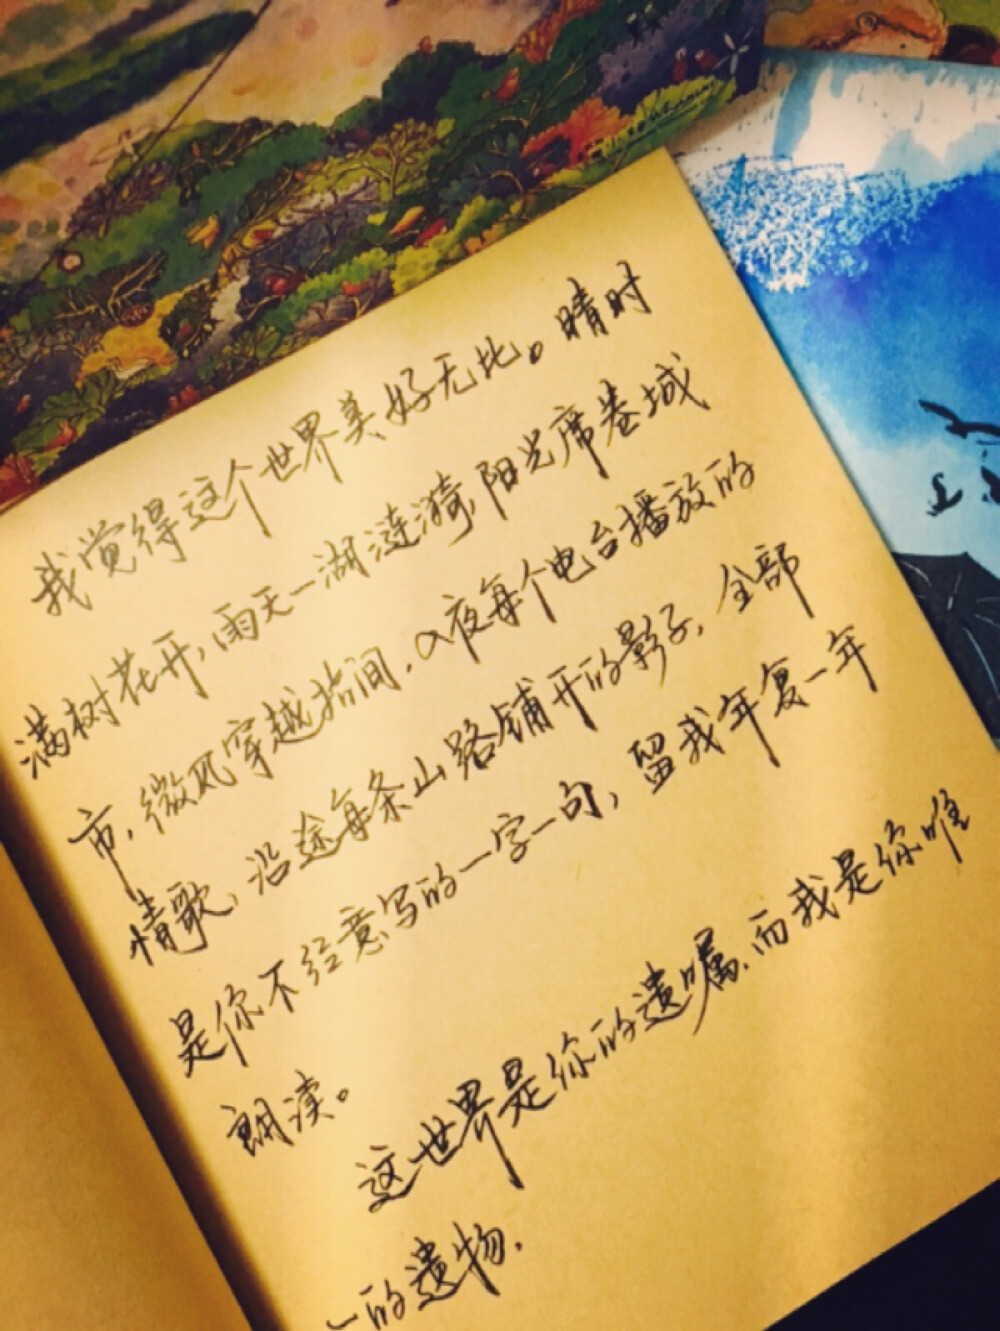 我觉得这个世界美好无比。晴时
满树花开,雨天一湖涟漪,阳光席卷城
市,微风穿越指间,入夜每个电台播放的
情歌,沿途每条山路铺开的影子,全部
是你不经意写的一字一句,留我年复一年
朗读。
这世界是你的遗嘱,而我是你唯
一的遗物.